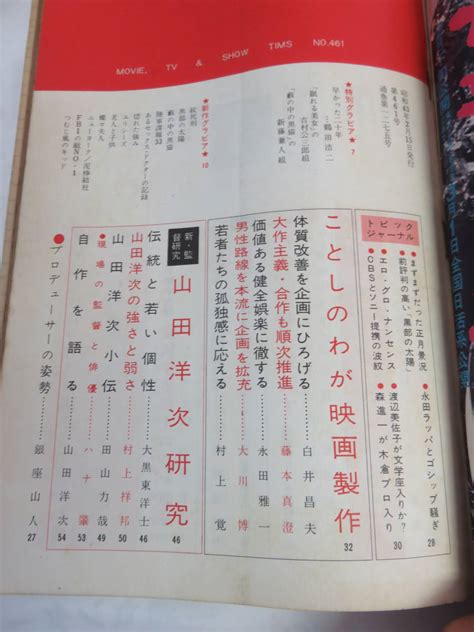 MOVIE, TV & SHOW TIMS NO.461
昭和43年2月15日発行
第461号
通巻第一二七五号
★特別グラビア★ 7
早かった二十年
…鶴田浩二
「眠れる美女」の
吉村公三郎組
「藪の中の黒猫」の
新藤兼人組
★新作グラビア★ 10
絞死刑
黒部の太陽
「藪の中の黒猫」
陸軍諜報33
あるセックス・ドクターの記録
惚れた強み
ユリシーズ
老人と子供
蝶々夫人
ニューヨーク泥棒結社
FBIの敵NO・1
つむじ風のキッド
トピック
ジャーナル
●まずまずだった正月景況
●前評判の高い「黒部の太陽」
●エロ・グロ・ナンセンス
●CBSとソニー提携の波紋
●永田ラッパとゴシップ騒ぎ
28
●渡辺美佐子が文学座入りか?
●森進一が木倉プロ入り
30
ことしのわが映画製作 32
体質改善を企画にひろげる……白井昌夫
大作主義・合作も順次推進……藤本真澄
価値ある健全娯楽に徹する……永田雅一
男性路線を本流に企画を拡充……大川博
若者たちの孤独感に応える……村上覚
新・監督研究
山田洋次研究 46
伝統と若い個性……大黒東洋士 46
山田洋次の強さと弱さ……村上祥邦 50
山田洋次小伝……田山力哉 49
●現場の監督と俳優……ハナ肇 53
自作を語る……山田洋次 54
●プロデューサーの姿勢……銀座山人 27